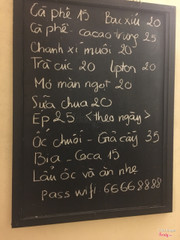 Cà phê 15 Bạc xỉu 20
Cà phê - cacao trứng 25
Chanh xí muội 20
Trà cúc 20 lpton 20
Mơ mận ngọt 20
Sữa chua 20
Ép 25 <theo ngày>
Ốc chuối - Giả cầy 35
Bia - Coca 15
Lẩu ốc và ăn nhẹ
Pass wifi 66668888